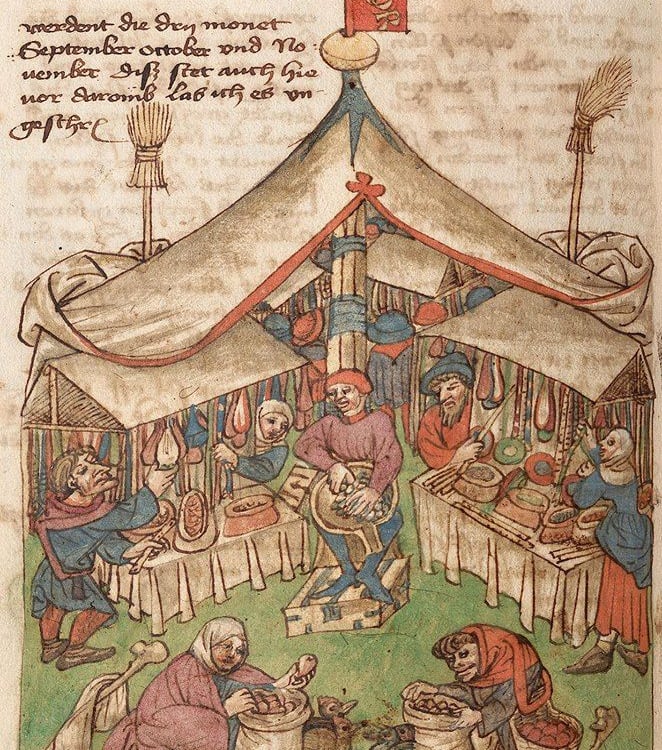 werdent die drij monet
September october vnd No:
uember Disz stet auch hie
vor daromb las ich es vn
geschr